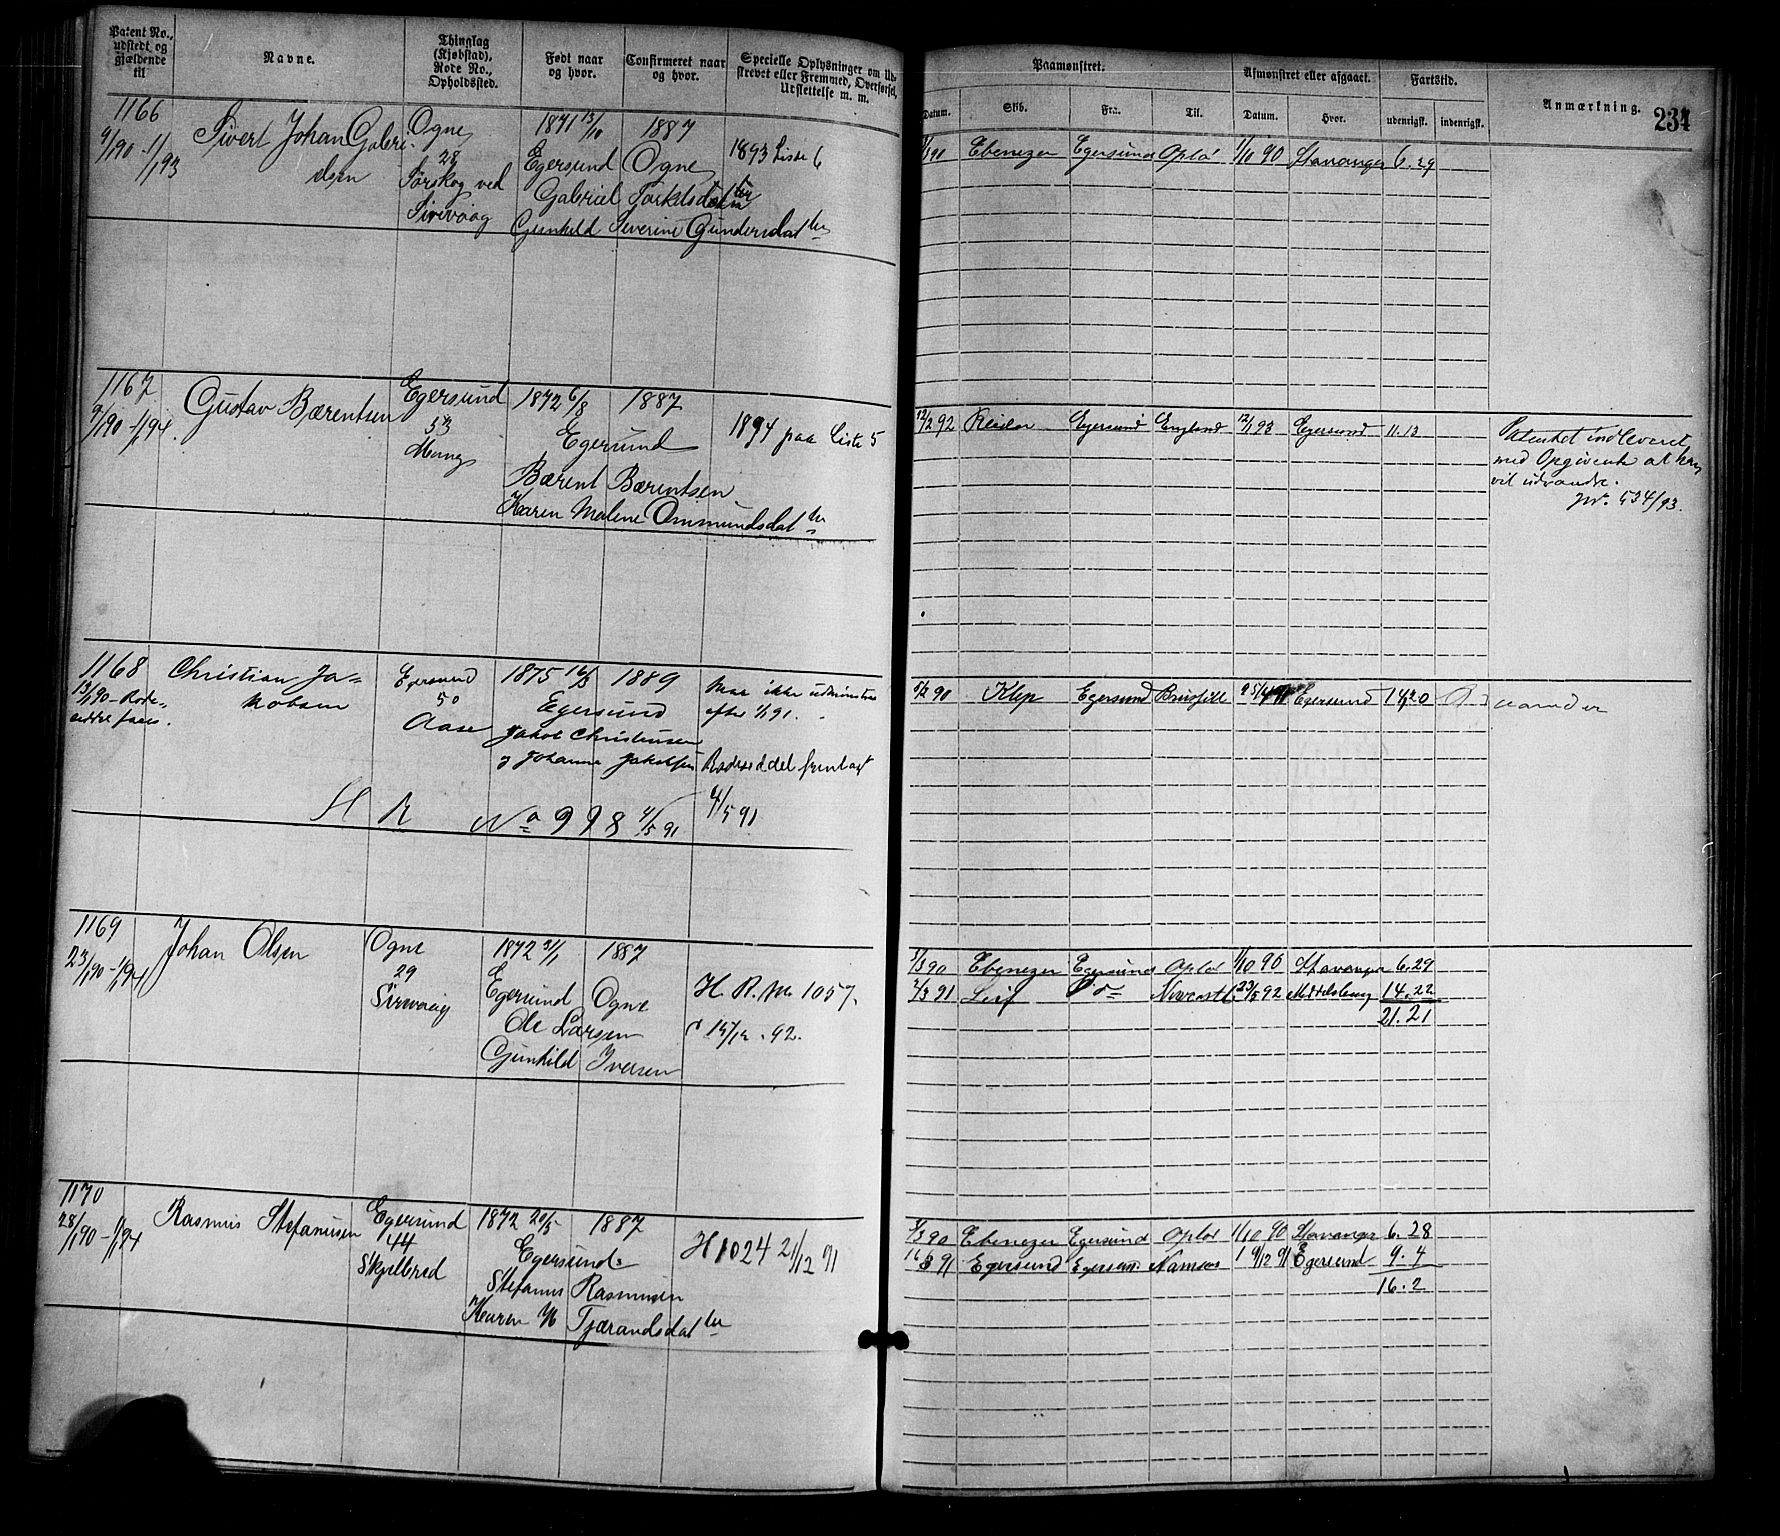 Patent No., udstedt og gjældende til
Navne.
Thinglag (Kjøbstad), Rode No., Opholdssted.
Født naar og hvor.
Confirmeret naar og hvor.
Specielle Oplysninger om Udstrevet eller Fremmed, Overførsel, Udslettelse m. m.
Paamønstret.
Datum.
Skib.
Fra.
Til.
Afmønstret eller afgaaet.
Datum.
Hvor.
Fartstid.
udenrigsk.
indenrigsk.
Anmærkning.
234
1166
9/1 90 - 1/1 93
Sivert Johan Gabri-
elsen
Ogne
28
Sørskog ved
Sirevaag
1871 13/10
Egersund
1887
Ogne
Gabriel Torkelsen
Gunhild Severine Gundersdatter
1893 Liste 6
90 Ebenezer Egersund Oplo 1/10 90 Stavanger 6.29
1167
9/1 90 - 1/1 94.
Gustav Bærentsen
Egersund
53
Mong
1872 6/8
1887
Egersund
Bærent Bærentsen
Karen Malene Ommundsdatter
1894 paa Liste 5
12/2 92 Reidar Egersund England 12/1 93 Egersund 11.13
Patentet indleveret
med Opgivende at han
vil udvandre.
Jr. 534/93.
1168
13/1 90 - Rode-
seddel faaes.
Christian Ja=
kobsen
Egersund
50
Aase
1875 16/3
1889
Egersund
Jakob Christensen
og Johanne Jakobsen
Maa ikke udmønstres
efter 1/1 91.
Rodeseddel fremlagt
4/5 91
H R No 998 4/5 91
90 Klep Egersund Egersund 14.20
1169
23/1 90 - 1/1 94
Johan Olsen
Ogne
29
Sirevaag
1872 31/1
Egersund
1887
Ogne
Ole Larsen
Gunhild Iversen
H. R. No 1057.
92.
5/3 90 Ebenezer Egersund Oplo 1/10 90 Stavanger 6.29
2/3 91 Leif do Newcastle 23/5 92 Middelsburg 14.22
21.21
1170
28/1 90 - 1/1 94
Rasmus Stefanusen
Egersund
44
Skjelbred
1872 20/5
1887
Egersund
Stefanus Rasmusen
Karen M Tjærandsdatter
H 1024 21/12 91
5/3 90 Ebenezer Egersund Oplo 1/10 90 Stavanger 6.28
91 Egersund Egersund Namsos 19/12 91 Egersund 9.4
16.2